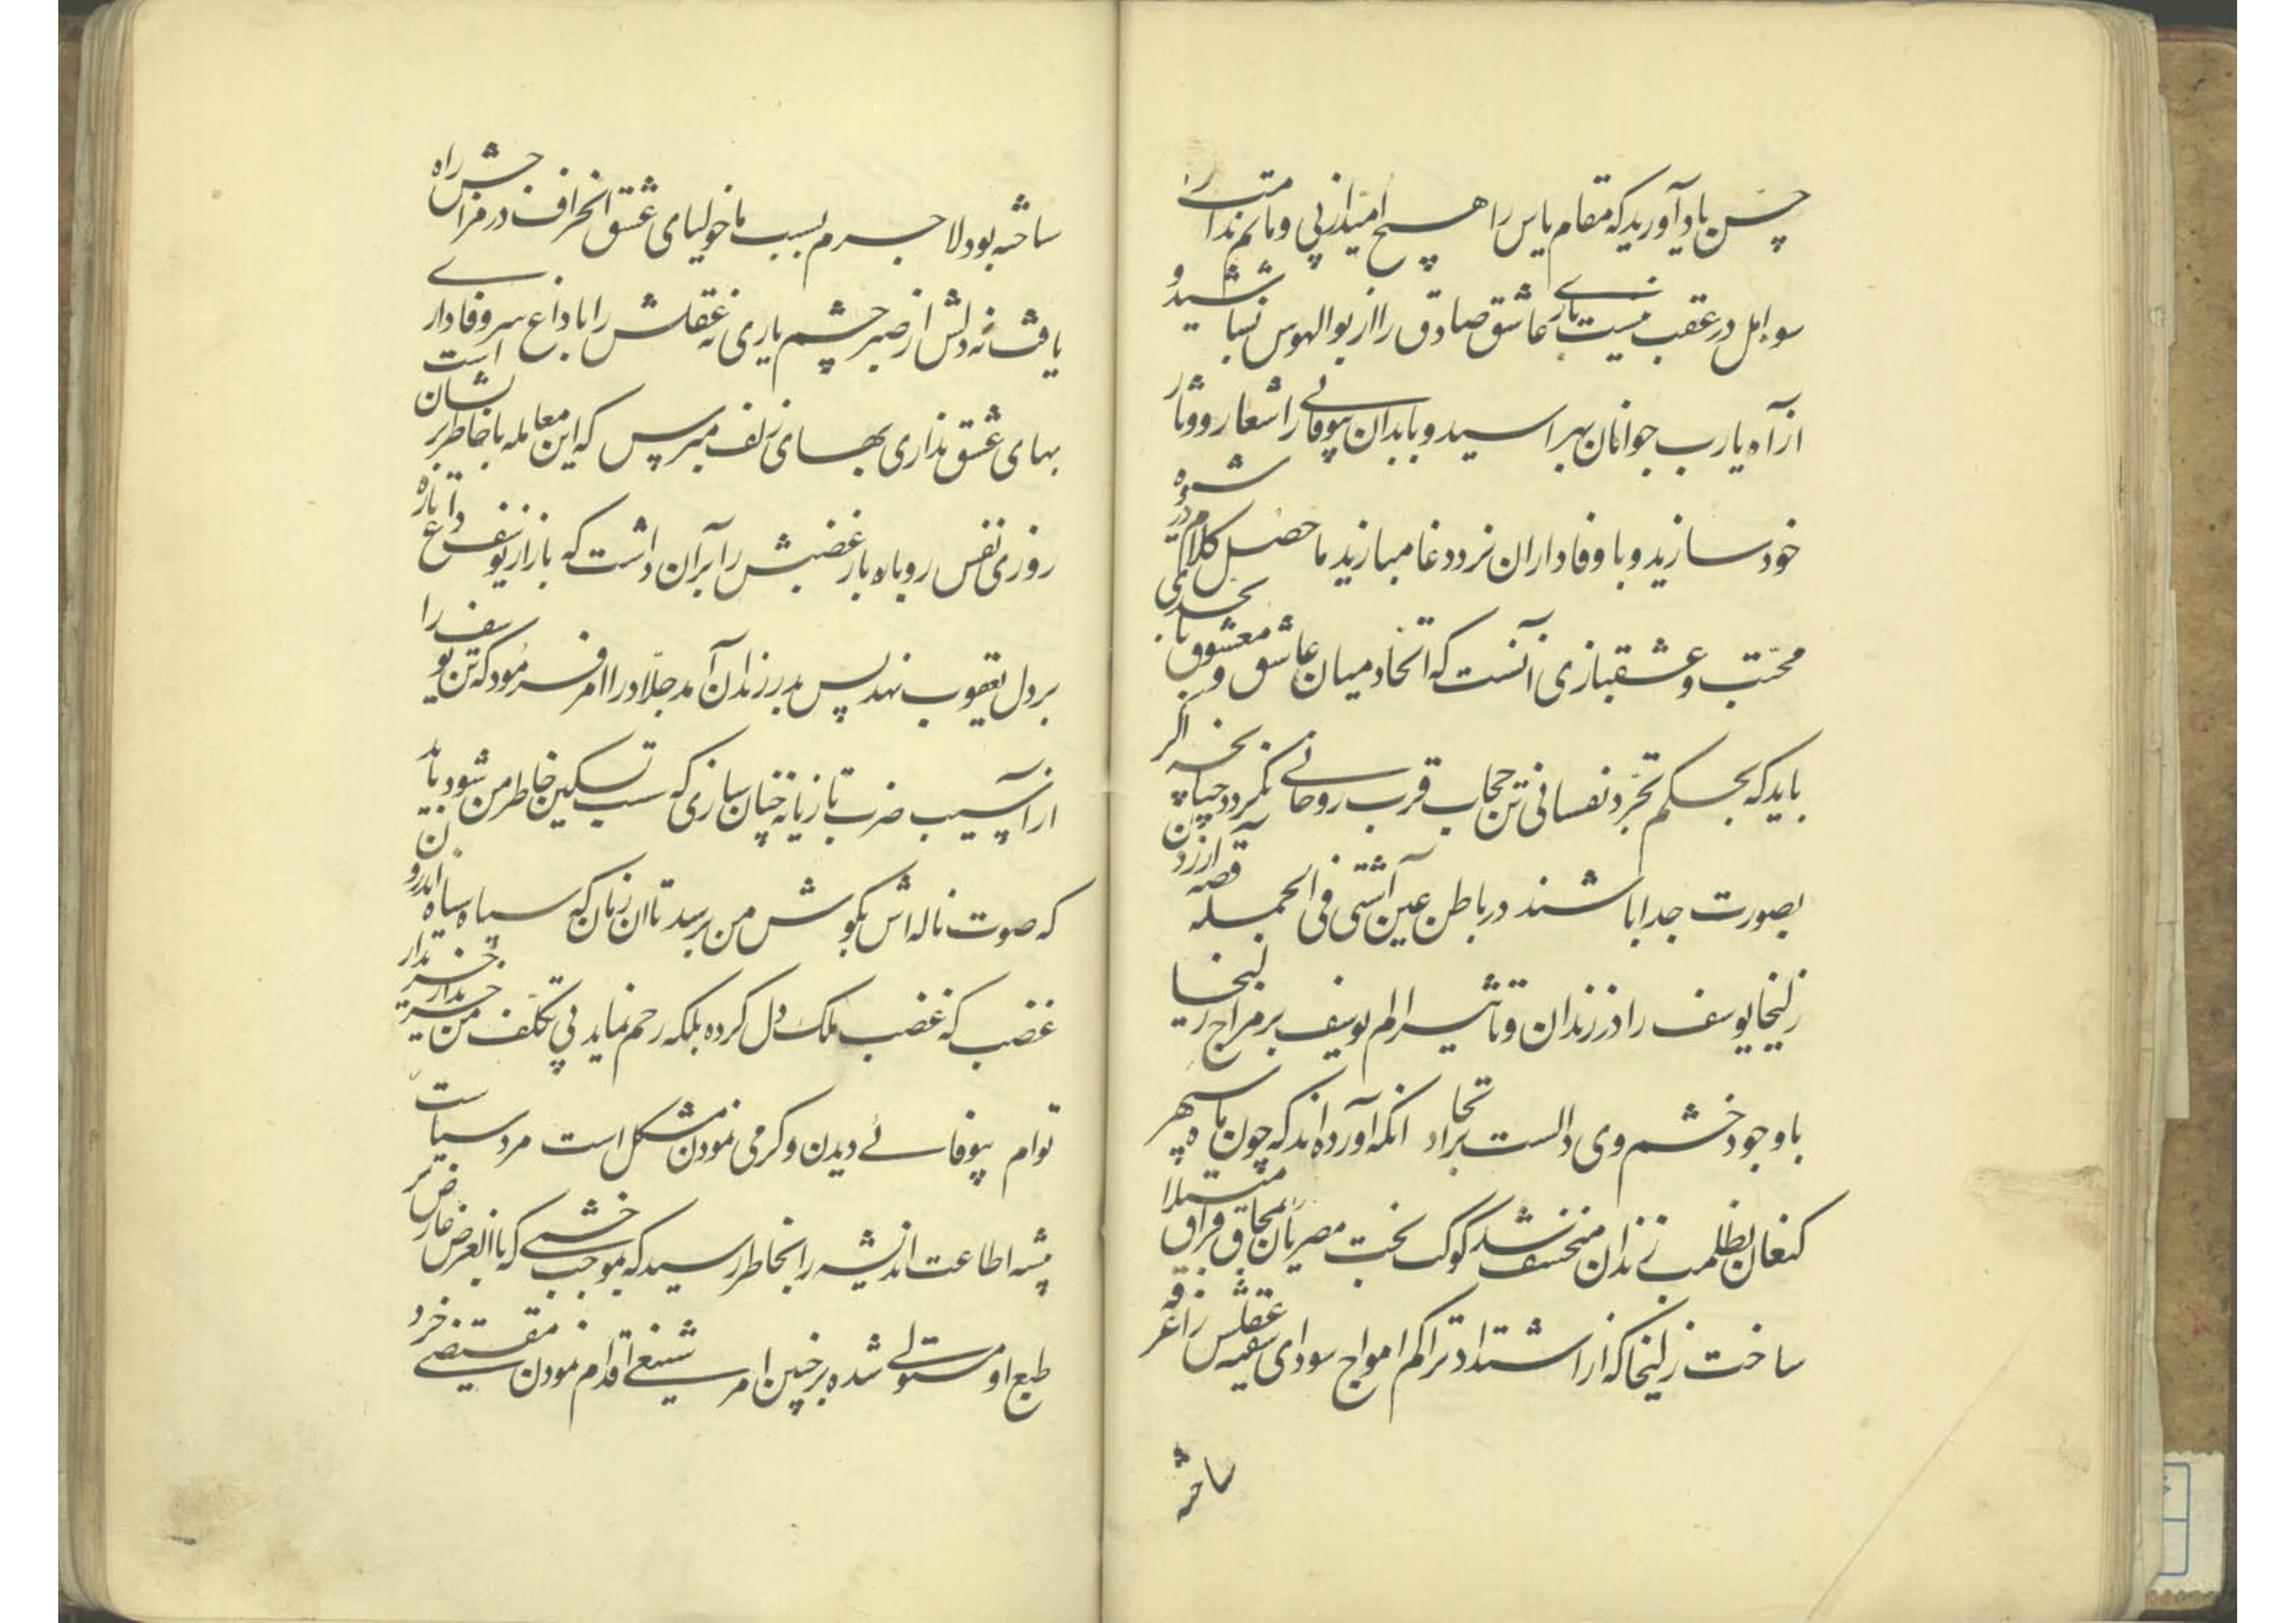 چین یاد آورید که مقام یاس را هیچ امید از پی و ماتم ندامت را
سور امل در عقب نیست باری عاشق صادق را از بوالهوس بشناسید و
از آه یارب جوانان بهراسید و با بدان بیوفائی را شعار و دثار
خود سازید و با وفاداران نرد دغا مبازید ماحصل کلام در شیوه
محبت و عشقبازی آنست که اتحاد میان عاشق و معشوق بحدی
باید که بحکم تجرد نفسانی تن حجاب قرب روحانی نگردد چنانچه اگر
بصورت جدا باشند در باطن عین آشتی فی الجمله قصه
زلیخا یوسف را در زندان و تاثیر الم یوسف بر مزاج زلیخا
با وجود خشم وی دالست بر اتحاد انکه آورده اند که چون ماه سپهر
کنعان بظلمت زندان منخسف شد کوکب بخت مصریان بمحاق فراق مبتلا
ساخت زلیخا که از اشتداد تراکم امواج سودای سفینه عقلش را غرقه
ساخته
ساخته بود لاجرم بسبب ماخولیای عشق انحراف در مزاجش راه
یافت نه دلش از صبر چشم یاری نه عقلش را با داغ سر وفاداری
بهای عشق نداری بهای زلف مپرس که این معامله با خاطر پریشان است
روزی نفس روباه باز غضبش را بر آن داشت که باز از یوسف داغ تازه
بر دل یعقوب نهد پس بدر زندان آمد جلاد را امر فرمود که تن یوسف را
از آسیب ضرب تازیانه چنان سازی که سبب تسکین خاطر من شود باید
که صوت ناله اش بگوش من برسد تا ان زمان که سپاه سیاه اندرون
غضب که غضب ملک دل کرده بلکه رحم نماید بی تکلف من خبر ندارد
توام بیوفائی دیدن و گرمی نمودن مشکل است مرد سیاست
پیشه اطاعت اندیشه را بخاطر رسید که بموجب خشمی که بالعرض عارض بر
طبع او مستولی شده بر چنین امر شنیعی اقدام نمودن مقتضی خرد